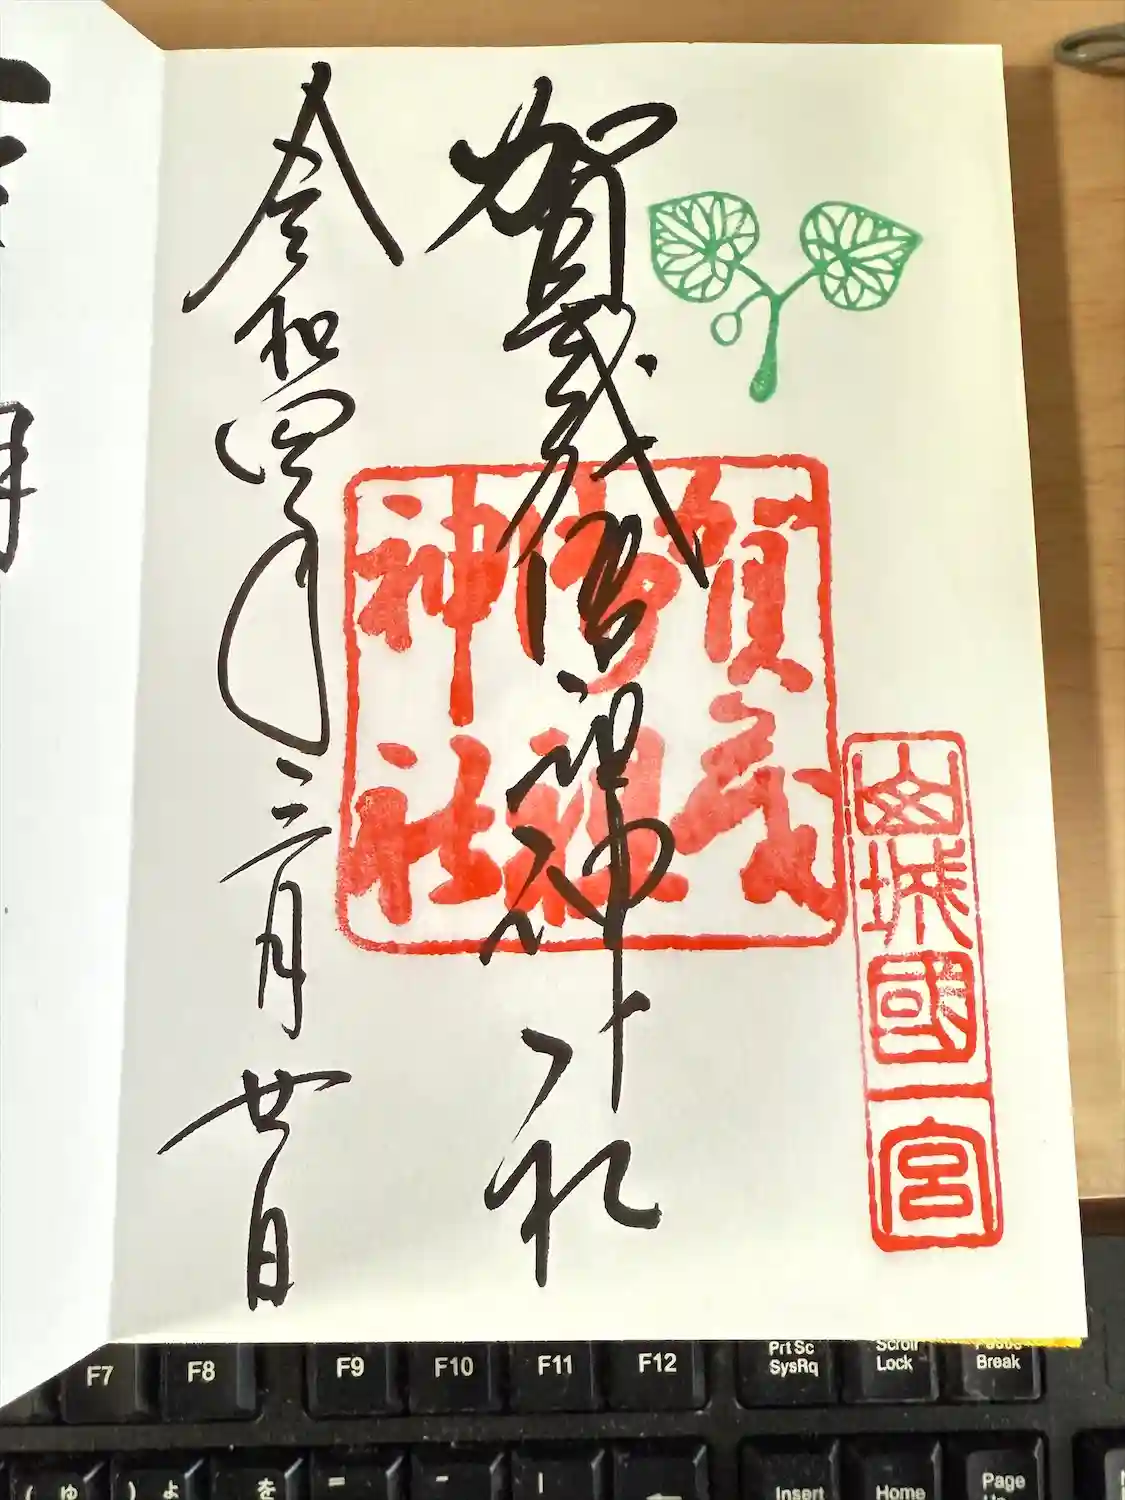 山城國一宮
賀茂御祖神社
賀茂
御祖
神社
令和四年三月廿日
F7 F8 F9 F10 F11 F12
Prt Sc
SysRq
Scroll
Lock
Break
( ゆ ) よ を = - |
Insert Home Page